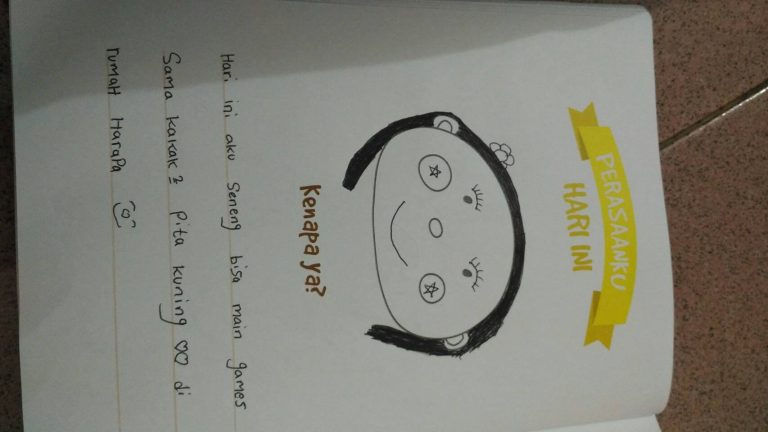 PERASAANKU
HARI INI
Kenapa ya?
Hari ini aku seneng bisa main games
Sama kakak2 pita kuning ♡♡ di
rumah Harapa